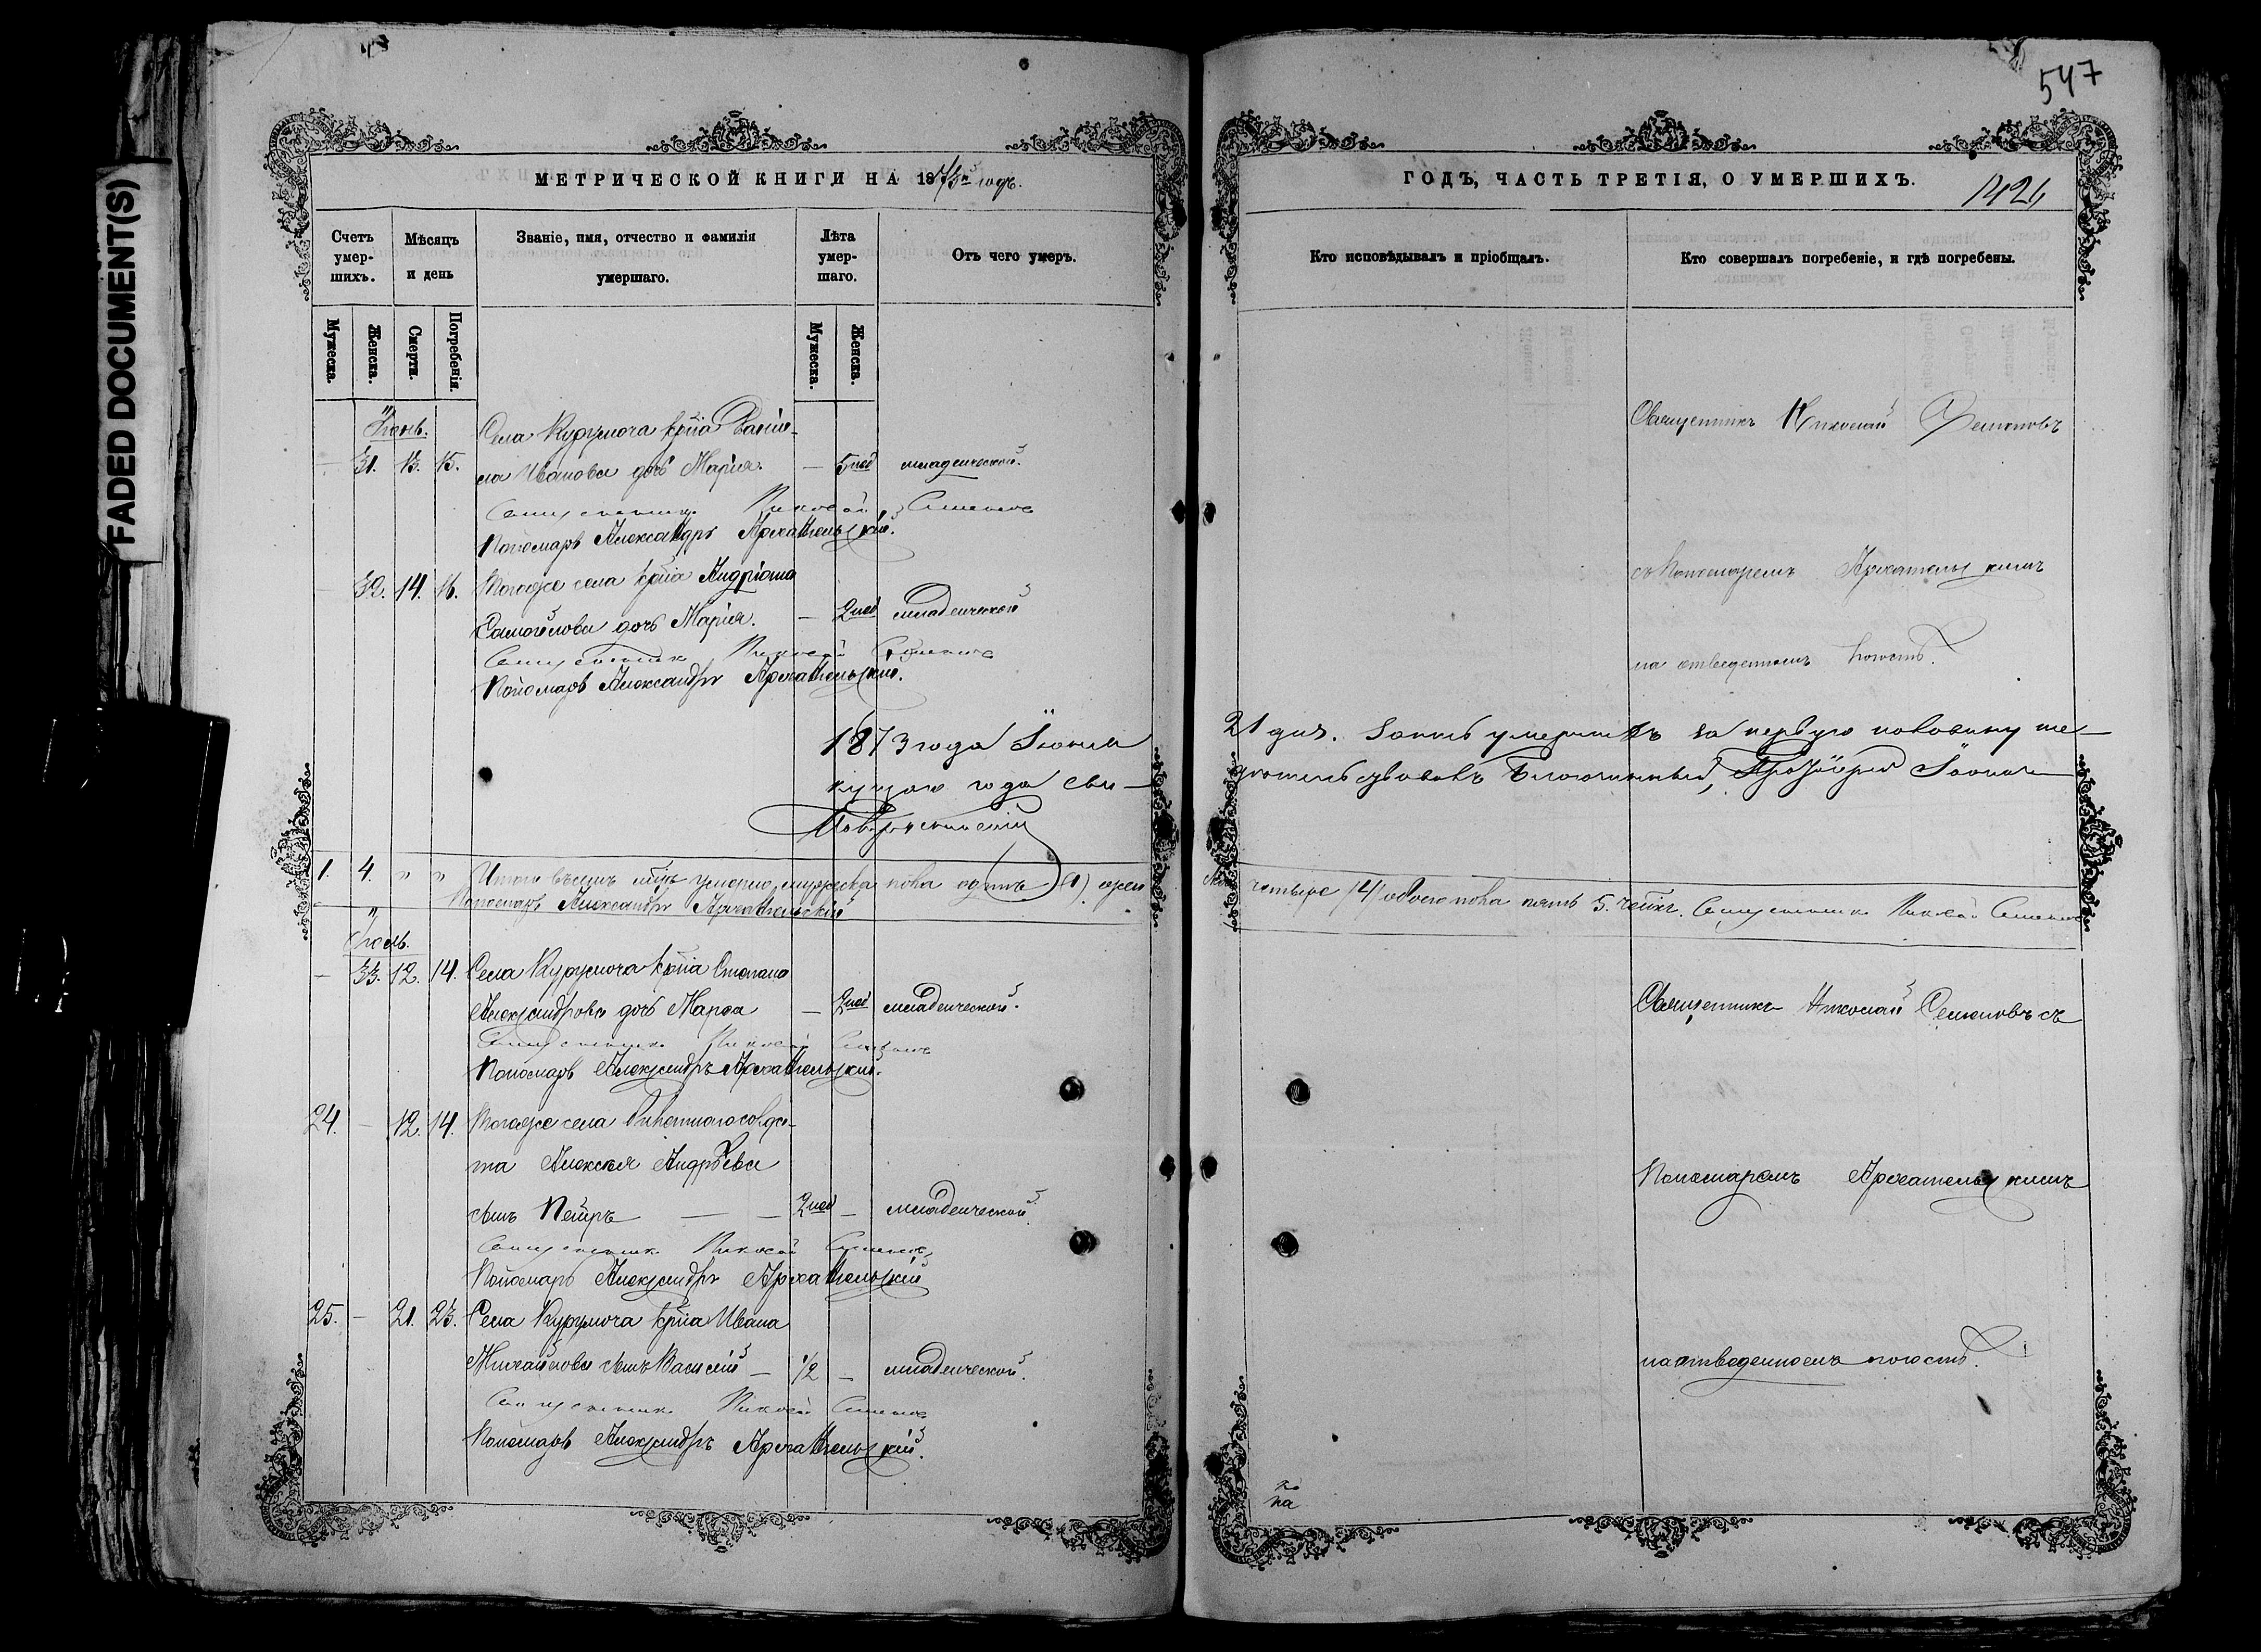 547
FADED DOCUMENT(S)
МЕТРИЧЕСКОЙ КНИГИ НА 1873й годъ.
Счетъ умер- шихъ.
Мѣсяцъ и день
Званіе, имя, отчество и фамилія умершаго.
Лѣта умер- шаго.
Отъ чего умеръ.
Мужеска.
Женска.
Смерти.
Погребенія.
Мужеска.
Женска.
Іюнь.
Села Курумоча кр͠на
31. 13. 15. Иванова дочь Марія. — 5 нед младенческой.
Священникъ Николай Семеновъ
Пономарь Александръ Архангельскій.
32. 14. 16. Тогоже села кр͠на Андріана
Самойлова дочь Марія. — 2 нед младенческой
Священникъ Николай Семеновъ
Пономарь Александръ Архангельскій.
1873 года Іюня
кущаго года сви-
1. 4. " " Итого въ умерло мужеска пола одинъ (1), жен
Пономарь Александръ Архангельскій
Іюль.
— 33. 12. 14. Села Курумоча кр͠на Степана
Александрова дочь Марѳа — 2 нед младенческой.
Священникъ Николай Семеновъ
Пономарь Александръ Архангельскій.
24. — 12. 14. Тогоже села солда-
та Алексѣя Андрѣева
сынъ Петръ — — 2 нед — младенческой.
Священникъ Николай Семеновъ
Пономарь Александръ Архангельскій
25. — 21. 23. Села Курумоча кр͠на Ивана
Михайлова сынъ Василій — 1/2 — младенческой.
Священникъ Николай Семеновъ
Пономарь Александръ Архангельскій.
ГОДЪ, ЧАСТЬ ТРЕТІЯ, О УМЕРШИХЪ.
Кто исповѣдывалъ и пріобщалъ.
Кто совершалъ погребеніе, и гдѣ погребены.
Священникъ Николай Семеновъ
съ Пономаремъ Архангельскимъ
на отведенномъ погостѣ.
21 дня. Запись умершихъ за первую половину те-
дѣтельствовалъ Благочинный, Протоіерей
четыре (4) обоего пола пять 5. Священникъ Николай Семеновъ
Священникъ Николай Семеновъ съ
Пономаремъ Архангельскимъ
на отведенномъ погостѣ.